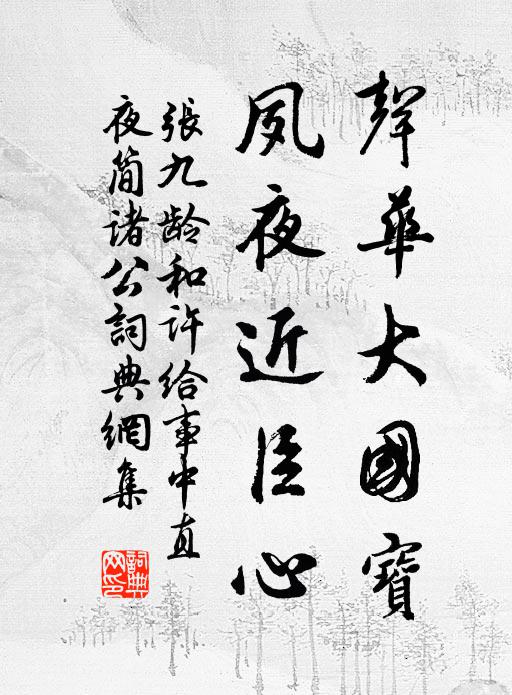 聲華大國寶
夙夜近臣心
張九齡和许给事中直
夜简诸公詞典網集
詞典网印